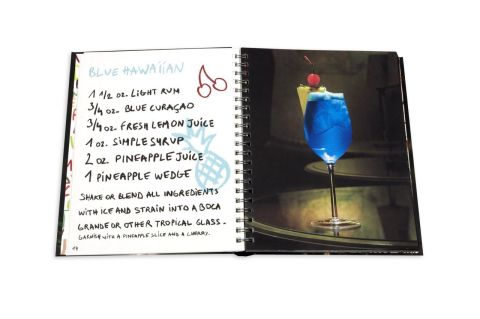 BLUE HAWAIIAN
1 1/2 OZ. LIGHT RUM
3/4 OZ. BLUE CURAÇAO
3/4 OZ. FRESH LEMON JUICE
1 OZ. SIMPLE SYRUP
2 OZ. PINEAPPLE JUICE
1 PINEAPPLE WEDGE
SHAKE OR BLEND ALL INGREDIENTS
WITH ICE AND STRAIN INTO A BOCA
GRANDE OR OTHER TROPICAL GLASS.
GARNISH WITH A PINEAPPLE SLICE AND A CHERRY.